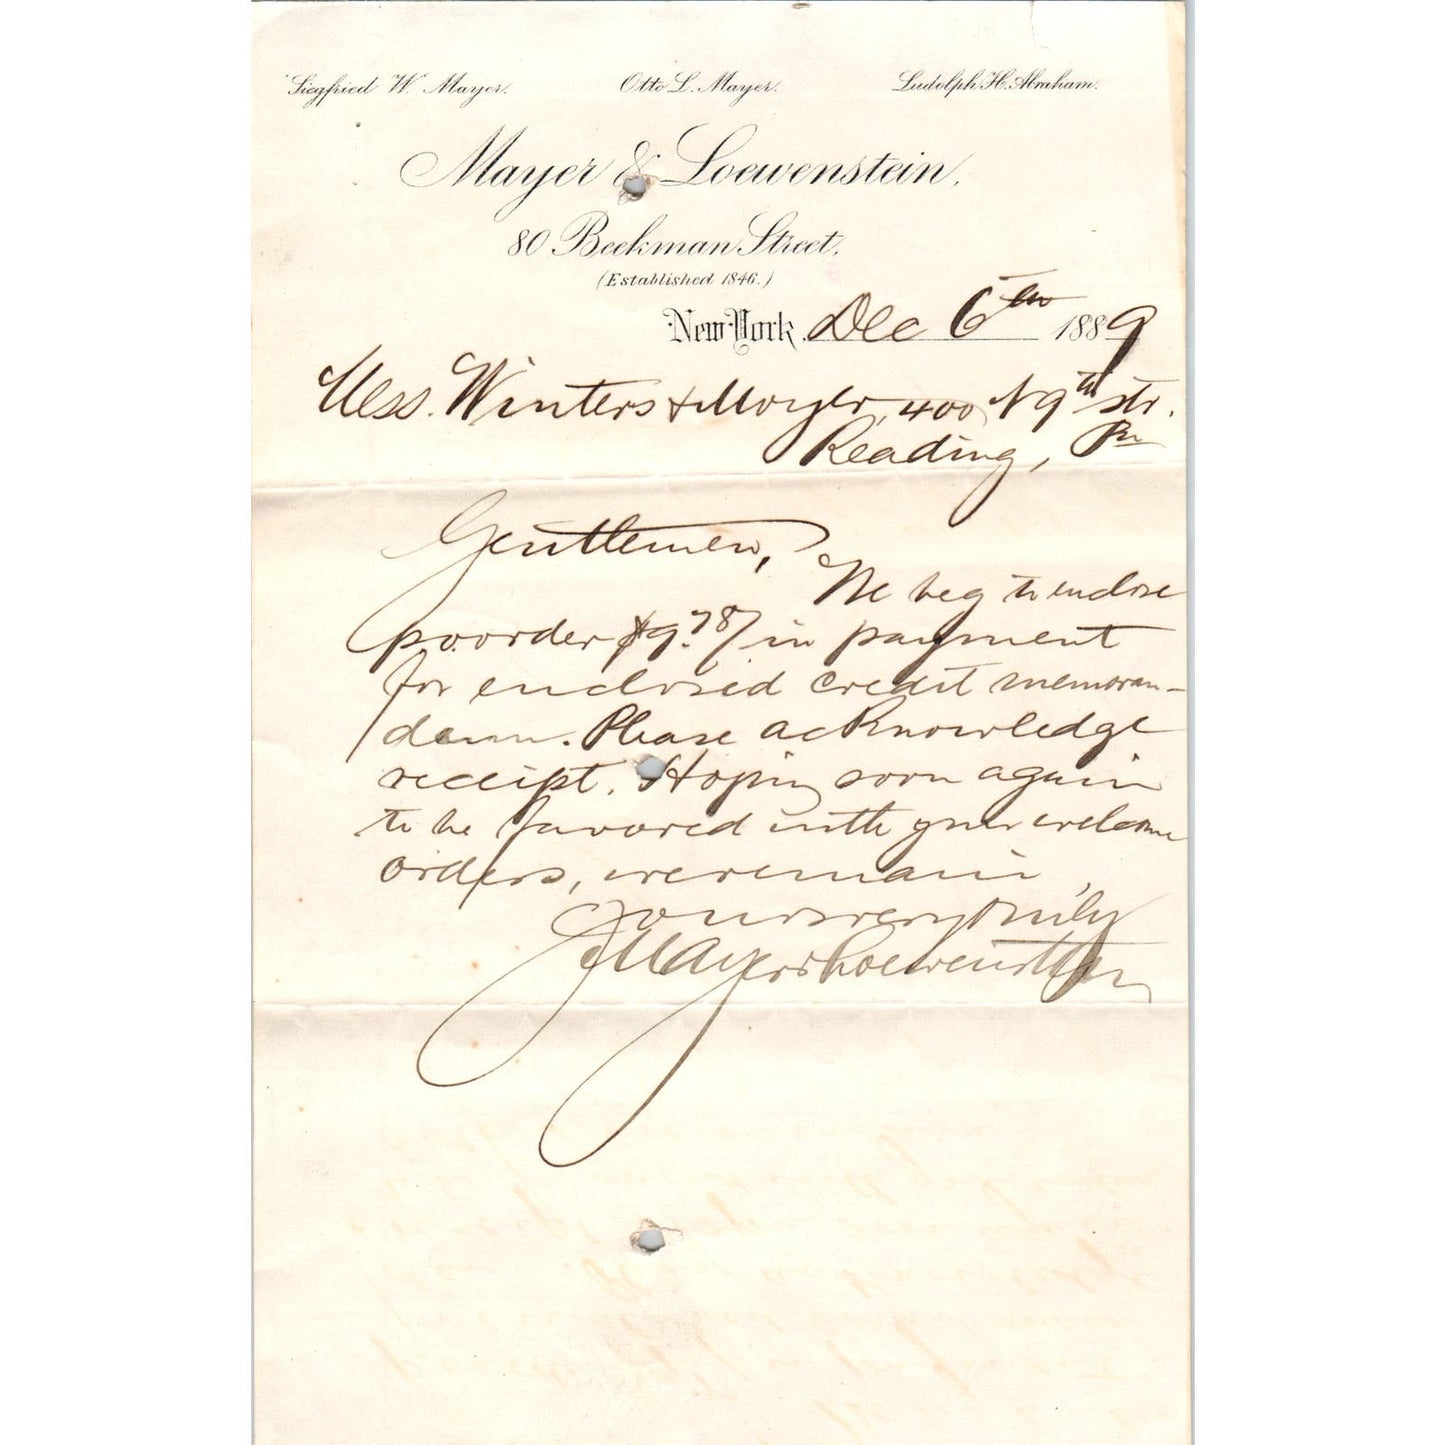 Siegfried W. Mayer. Otto L. Mayer. Ludolph H. Abraham.
Mayer & Loewenstein.
80 Beekman Street.
(Established 1846.)
New York. Dec 6th 1889
Mess. Winters & Moyer, 400 N 9th str.
Reading, Pa
Gentlemen,
We beg to enclose
p.o. order $9.78/ in payment
for enclosed credit memoran-
dum. Please acknowledge
receipt. Hoping soon again
to be favored with your welcome
orders, we remain,
Yours very truly
Mayer & Loewenstein